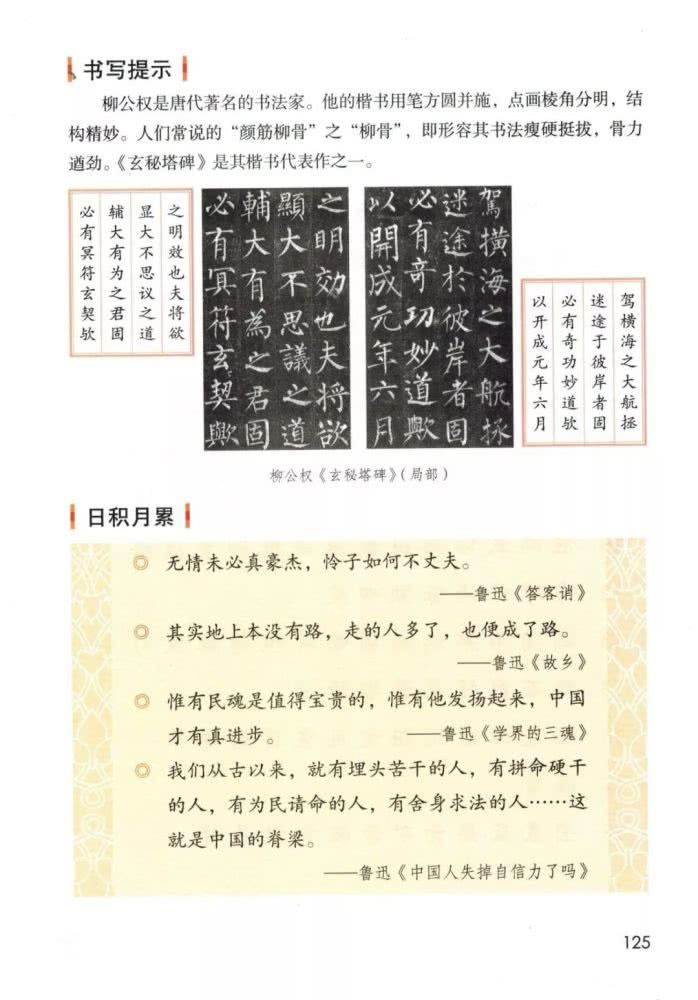 书写提示
柳公权是唐代著名的书法家。他的楷书用笔方圆并施，点画棱角分明，结
构精妙。人们常说的“颜筋柳骨”之“柳骨”，即形容其书法瘦硬挺拔，骨力
遒劲。《玄秘塔碑》是其楷书代表作之一。
之明效也夫将欲
显大不思议之道
辅大有为之君固
必有冥符玄契欤
之明效也夫将欲
顯大不思議之道
輔大有為之君固
必有冥符玄契歟
駕横海之大航拯
迷途於彼岸者固
必有奇功妙道歟
以開成元年六月
驾横海之大航拯
迷途于彼岸者固
必有奇功妙道欤
以开成元年六月
柳公权《玄秘塔碑》（局部）
日积月累
◎ 无情未必真豪杰，怜子如何不丈夫。
——鲁迅《答客诮》
◎ 其实地上本没有路，走的人多了，也便成了路。
——鲁迅《故乡》
◎ 惟有民魂是值得宝贵的，惟有他发扬起来，中国
才有真进步。 ——鲁迅《学界的三魂》
◎ 我们从古以来，就有埋头苦干的人，有拼命硬干
的人，有为民请命的人，有舍身求法的人……这
就是中国的脊梁。
——鲁迅《中国人失掉自信力了吗》
125